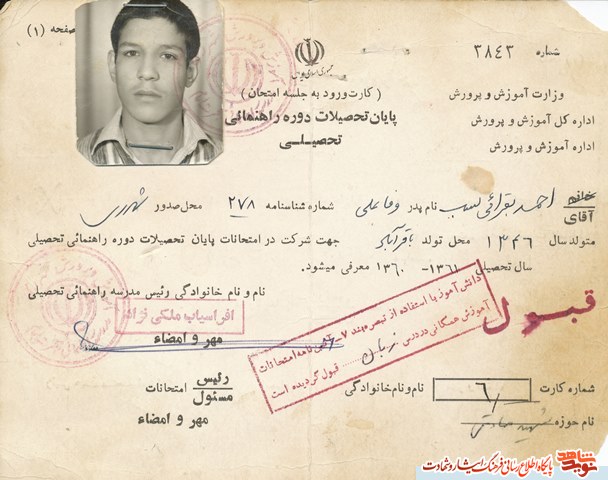 صفحه (۱)
شماره ۲۸۴۳
جمهوری اسلامی ایران
وزارت آموزش و پرورش
(کارت ورود به جلسه امتحان)
اداره کل آموزش و پرورش
پایان تحصیلات دوره راهنمائی
اداره آموزش و پرورش
تحصیلی
خانم
آقای احمد نام پدر شماره شناسنامه ۲۷۸ محل صدور شهرری
متولد سال ۱۳۴۶ محل تولد باقرآباد جهت شرکت در امتحانات پایان تحصیلات دوره راهنمائی تحصیلی
سال تحصیلی ۱۳۶۱- ۱۳۶۰ معرفی میشود.
نام و نام خانوادگی رئیس مدرسه راهنمائی تحصیلی
افراسیاب ملکی نژاد
مهر و امضاء
دانش‌آموز با استفاده از تبصره بند ۷ آئین نامه امتحانات
آموزش همگانی در درس زبان قبول گردیده است
قبول
رئیس
مسئول
امتحانات
مهر و امضاء
شماره کارت ۶/
نام و نام خانوادگی
نام حوزه
نوید شاهد
پایگاه اطلاع رسانی فرهنگ ایثار و شهادت